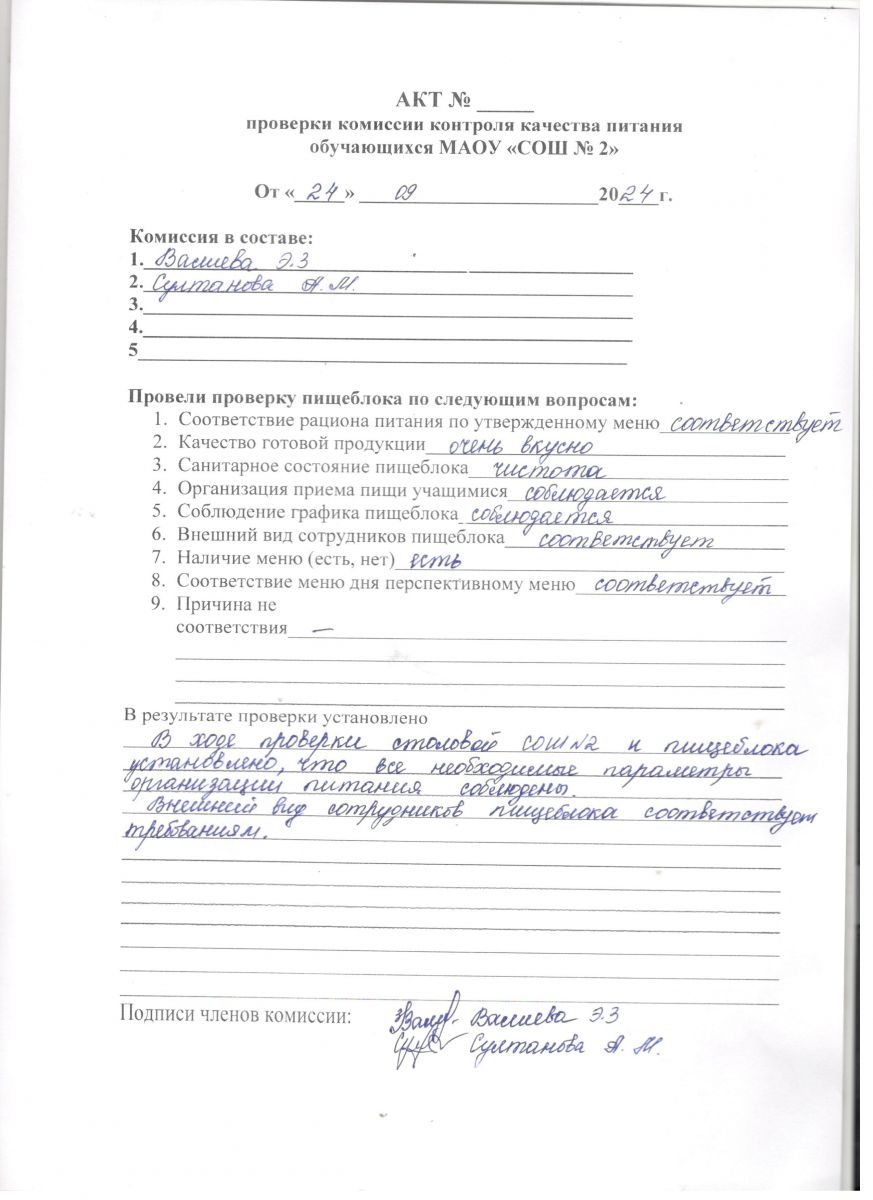 АКТ № _____
проверки комиссии контроля качества питания
обучающихся МАОУ «СОШ № 2»
От « 24 » 09 2024 г.
Комиссия в составе:
1. Валиева Э.З
2. Султанова А.М.
3.
4.
5
Провели проверку пищеблока по следующим вопросам:
1. Соответствие рациона питания по утвержденному меню соответствует
2. Качество готовой продукции очень вкусно
3. Санитарное состояние пищеблока чистота
4. Организация приема пищи учащимися соблюдается
5. Соблюдение графика пищеблока соблюдается
6. Внешний вид сотрудников пищеблока соответствует
7. Наличие меню (есть, нет) есть
8. Соответствие меню дня перспективному меню соответствует
9. Причина не
соответствия —
В результате проверки установлено
В ходе проверки столовой СОШ N2 и пищеблока
установлено, что все необходимые параметры
организации питания соблюдены.
Внешний вид сотрудников пищеблока соответствует
требованиям.
Подписи членов комиссии: Валиева Э.З
Султанова А. М.